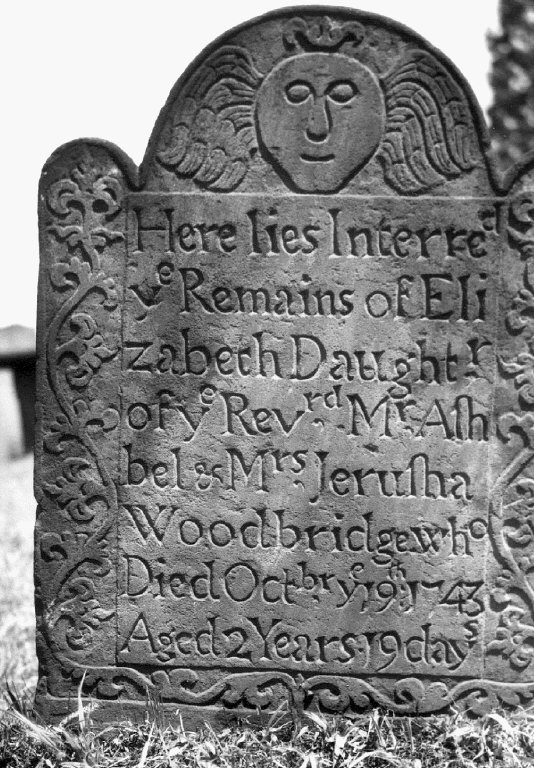 Here lies Interred
yͤ Remains of Eli
zabeth Daughtr
of yͤ Revrd Mr Aſh
bel & Mrs Jeruſha
Woodbridge who
Died Octbr yͤ 19th 1743
Aged 2 Years 19 days